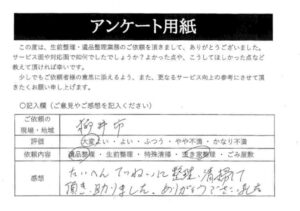 アンケート用紙
この度は、生前整理・遺品整理業務のご依頼を頂きまして、ありがとうございました。
サービス面や対応面で如何でしたでしょうか?よかった点や、こうしてほしかった点など
教えて頂ければ幸いです。
少しでもご依頼者様の意思に添えるよう、また、更なるサービス向上の参考にさせて頂
きたくお願い申し上げます。
○記入欄(ご意見やご感想を記入ください)
ご依頼の
現場・地域
柳井市
評価 大変よい・よい・ふつう・やや不満・かなり不満
依頼内容 遺品整理・生前整理・特殊清掃・空き家整理・ごみ屋敷
感想
たいへんていねいに整理、清掃して
頂き、助りました。ありがとうございました